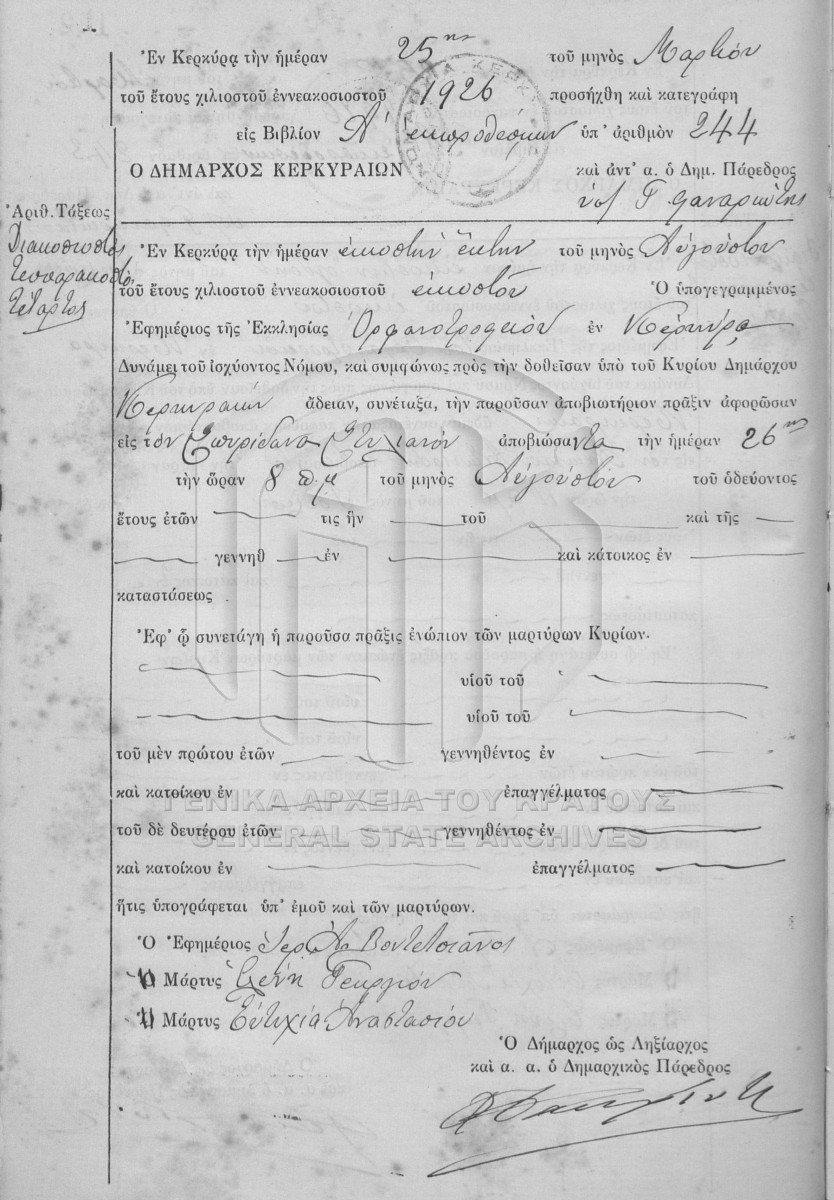 Ἐν Κερκύρᾳ τὴν ἡμέραν 25ην τοῦ μηνὸς Μαρτίου
τοῦ ἔτους χιλιοστοῦ ἐννεακοσιοστοῦ 1926 προσήχθη καὶ κατεγράφη
εἰς Βιβλίον Α' ἐκπροθέσμων ὑπ' ἀριθμὸν 244
Ὁ ΔΗΜΑΡΧΟΣ ΚΕΡΚΥΡΑΙΩΝ καὶ ἀντ' α. ὁ Δημ. Πάρεδρος
Γ. Φαναριώτης
Ἀριθ. Τάξεως
Διακοσιοστὸς
τεσσαρακοστὸς
τέταρτος
Ἐν Κερκύρᾳ τὴν ἡμέραν εἰκοστὴν ἕκτην τοῦ μηνὸς Αὐγούστου
τοῦ ἔτους χιλιοστοῦ ἐννεακοσιοστοῦ εἰκοστοῦ Ὁ ὑπογεγραμμένος
Ἐφημέριος τῆς Ἐκκλησίας Ὀρφανοτροφείου ἐν Κερκύρᾳ
Δυνάμει τοῦ ἰσχύοντος Νόμου, καὶ συμφώνως πρὸς τὴν δοθεῖσαν ὑπὸ τοῦ Κυρίου Δημάρχου
Κερκυραίων ἄδειαν, συνέταξα, τὴν παροῦσαν ἀποβιωτήριον πρᾶξιν ἀφορῶσαν
εἰς τὸν Σπυρίδωνα Στυλιανόν ἀποβιώσαντα τὴν ἡμέραν 26ην
τὴν ὥραν 8 π.μ τοῦ μηνὸς Αὐγούστου τοῦ ὁδεύοντος
ἔτους ἐτῶν τις ἦν τοῦ καὶ τῆς
γεννηθ ἐν καὶ κάτοικος ἐν
καταστάσεως
Ἐφ' ᾧ συνετάγη ἡ παροῦσα πρᾶξις ἐνώπιον τῶν μαρτύρων Κυρίων.
υἱοῦ τοῦ
υἱοῦ τοῦ
τοῦ μὲν πρώτου ἐτῶν γεννηθέντος ἐν
καὶ κατοίκου ἐν ἐπαγγέλματος
ΓΕΝΙΚΑ ΑΡΧΕΙΑ ΤΟΥ ΚΡΑΤΟΥΣ
τοῦ δὲ δευτέρου ἐτῶν γεννηθέντος ἐν
GENERAL STATE ARCHIVES
καὶ κατοίκου ἐν ἐπαγγέλματος
ἥτις ὑπογράφεται ὑπ' ἐμοῦ καὶ τῶν μαρτύρων.
Ὁ Ἐφημέριος Ἱερ.
Ἡ Μάρτυς Ἑλένη Γεωργίου
Ἡ Μάρτυς Εὐτυχία Ἀναστασίου
Ὁ Δήμαρχος ὡς Ληξίαρχος
καὶ α. α. ὁ Δημαρχικὸς Πάρεδρος